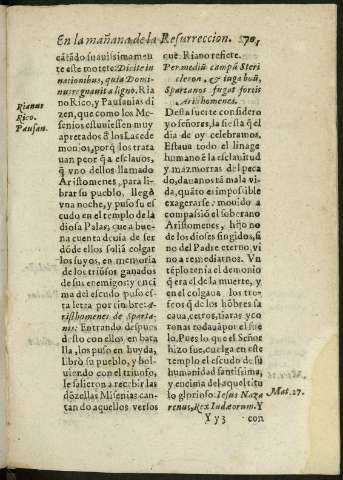 En la mañana de la Resurreccion. 270,
cãtãdo suauissimamen
te este motete: Dicite in
nationibus, quia Domi-
nus regnauit a ligno. Ria
no Rico, y Pausanias di
zen, que como los Me-
senios estuuiessen muy
apretados ð los Lacede
monios, porq̃ los trata
uan peor q̃ a esclauos,
q̃ vno dellos llamado
Aristomenes, para li-
brar su pueblo, llegò
vna noche, y puso su es
cudo en el templo de la
diosa Palas; que a bue-
na cuenta deuia de ser
dõde ellos soliã colgar
los suyos, en memoria
de los triũfos ganados
de sus enemigos: y enci
ma del escudo puso es-
ta letra por timbre: A-
risthomenes de Sparta-
nis: Entrando despues
desto con ellos en bata
lla, los puso en huyda,
librò su pueblo, y bol-
uiendo con el triunfo,
le salieron a recebir las
dõzellas Misenias can-
tando aquellos versos
Rianus
Rico.
Pausan.
que Riano refiere.
Per mediũ campũ Steri
cleron, & iuga bouũ,
Spartanos fugat fortis
Aristhomenes.
Desta suerte considero
yo señores, la fiesta q̃ el
dia de oy celebramos.
Estaua todo el linage
humano ẽ la esclauitud
y mazmorras del peca
do, dauanos tã mala vi
da, quãto es imposible
exagerarse: mouido a
compassiõ el soberano
Aristomenes, hijo no
de los dioses fingidos, si
no del Padre eterno, vi
no a remediarnos. Vn
tẽplo tenia el demonio
q̃ era el de la muerte, y
en el colgaua los tro-
feos q̃ de los hõbres sa
caua, cetros, tiaras, y co
ronas rodauã por el sue
lo. Pues lo que el Señor
hizo fue, cuelga en este
templo el escudo de su
humanidad santissima,
y encima del aquel titu
lo glorioso: Iesus Naza
renus, Rex Iudæorum. Y
Mat. 27.
Yy3 con